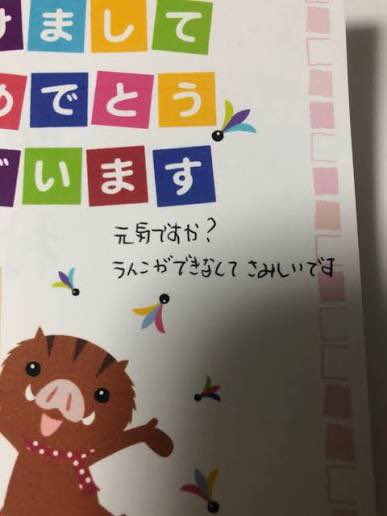 けまして
めでとう
ざいます
元気ですか?
うんこができなくて さみしいです